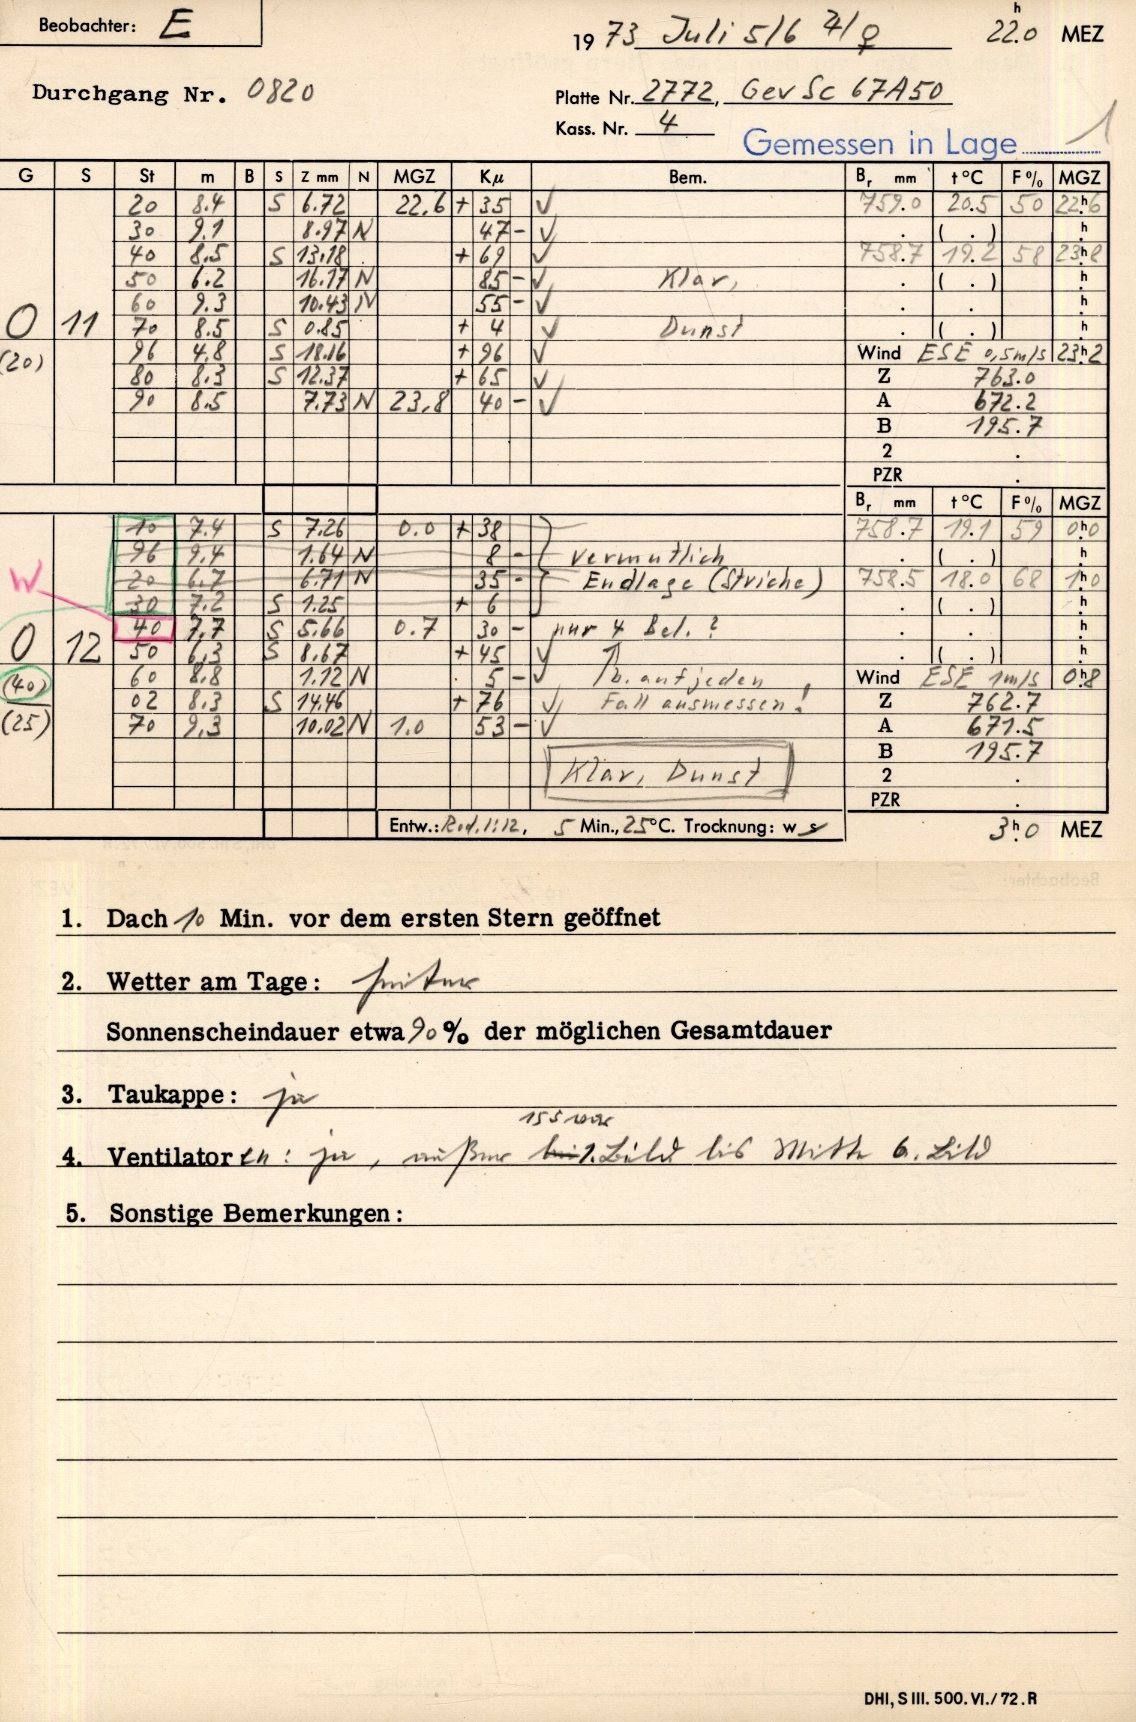 Beobachter: E
1973 Juli 5/6 ♃/♀ 22.ʰ0 MEZ
Durchgang Nr. 0820
Platte Nr. 2772, Gev Sc 67A50
Kass. Nr. 4
Gemessen in Lage 1
G S St m B S Z mm N MGZ Kμ Bem. Bᵣ mm t °C F % MGZ
20 8.4 S 6.72 22.6 + 35 ✓ 759.0 20.5 50 22.ʰ6
30 9.1 8.97 N 47 - ✓ . ( . ) .ʰ
40 8.5 S 13.18 + 69 ✓ 758.7 19.2 58 23.ʰ8
50 6.2 16.17 N 85 - ✓ Klar, . ( . ) .ʰ
60 9.3 10.43 N 55 - ✓ . . .ʰ
O 11 70 8.5 S 0.85 + 4 ✓ Dunst . ( . ) .ʰ
(20) 96 4.8 S 18.16 + 96 ✓ Wind ESE 0,5m/s 23.ʰ2
80 8.3 S 12.37 + 65 ✓ Z 763.0
90 8.5 7.73 N 23.8 40 - ✓ A 672.2
B 195.7
2 .
PZR .
Bᵣ mm t °C F % MGZ
10 7.4 S 7.26 0.0 + 38 758.7 19.1 59 0.ʰ0
96 9.4 1.64 N 8 - vermutlich . ( . ) .ʰ
W 20 6.7 6.71 N 35 - Endlage (Striche) 758.5 18.0 68 1.ʰ0
30 7.2 S 1.25 + 6 . ( . ) .ʰ
O 12 40 7.7 S 5.66 0.7 30 - nur 4 Bel.? . . .ʰ
50 6.3 S 8.67 + 45 ✓ . ( . ) .ʰ
(40) 60 8.8 1.12 N 5 - ✓ b. auf jeden Wind ESE 1m/s 0.ʰ8
02 8.3 S 14.46 + 76 ✓ Fall ausmessen! Z 762.7
(25) 70 9.3 10.02 N 1.0 53 - ✓ A 671.5
B 195.7
Klar, Dunst 2 .
PZR .
Entw.: Rod. 1:12, 5 Min., 25°C. Trocknung: w s 3.ʰ0 MEZ
1. Dach 10 Min. vor dem ersten Stern geöffnet
2. Wetter am Tage: heiter
Sonnenscheindauer etwa 90 % der möglichen Gesamtdauer
3. Taukappe: ja
4. Ventilatoren: ja, außer 1. Bild bis Mitte 6. Bild
5. Sonstige Bemerkungen:
DHI, S III. 500. VI./72. R